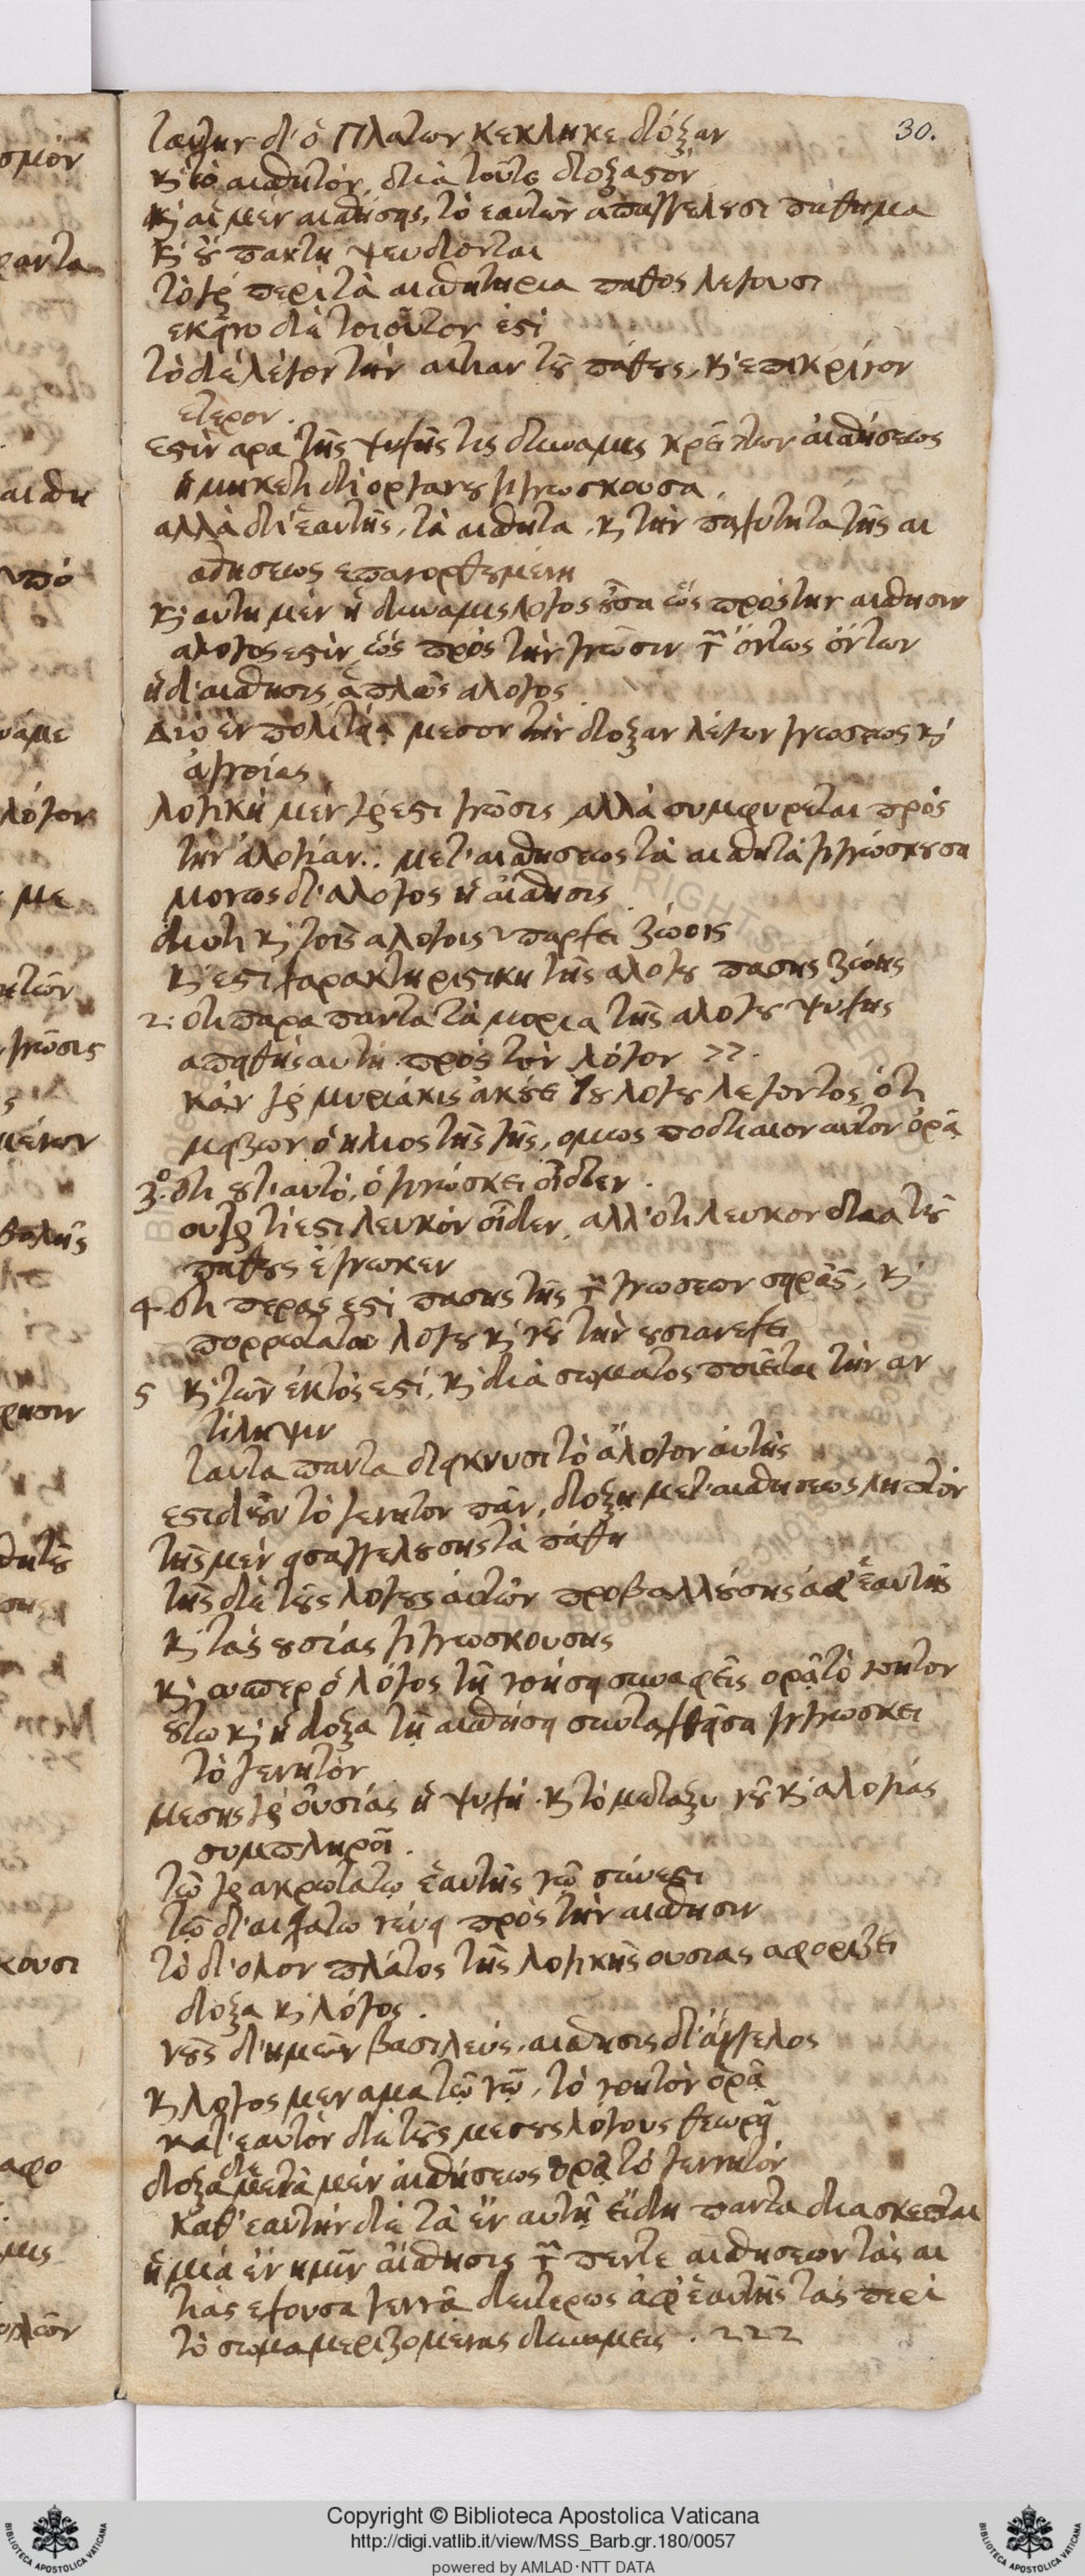 30.
ταύτην δ' ὁ Πλατων κεκληκε δόξαν
κ͵ τὸ αισθητόν, διὰ τοῦτο δοξαστόν
κ͵ αἱ μέν αισθήσεις, τὸ εαυτῶν απαγγελουσι πάθημα
κ͵ οὐ παντη ψευδονται
τὸ γὰρ περὶ τὰ αισθητηρια παθος λεγουσι
εκεῖνο δὲ τοιοῦτον ἐστὶ
τὸ δὲ λέγον τὴν αιτιαν τοῦ πάθους, κ͵ επικρῖνον
ετερον.
εστὶν αρα τῆς ψυχῆς τις δυναμις κρείττων αἰσθήσεως
ἡ μηκετι δι οργανου γιγνωσκουσα,
αλλὰ δι' ἑαυτῆς, τὰ αισθητα, κ͵ τὴν παχυτητα τῆς αι
σθησεως επανορθουμενη
κ͵ αυτη μὲν ἡ δυναμις λογος οὖσα ὡς πρὸς την αισθησιν
αλογος εστὶν, ὡς πρὸς τὴν γνῶσιν τῶν ὄντως ὄντων
ἡ δ' αισθησις ἁπλῶς αλογος
Διὸ ἐν πολιτείᾳ μεσον τὴν δοξαν λέγων γνωσεως κ͵
ἀγνοίας
λογικὴ μέν γὰρ εστι γνῶσις αλλὰ συμφυρεται πρὸς
τὴν ἀλογίαν.: μετ' αισθησεως τὰ αισθητὰ γιγνώσκουσα
μονως δ' αλογος ἡ αἴσθησις
διοτι κ͵ τοῖς αλογοις υπαρχει ζώοις
κ͵ εστι χαρακτηριστικη τῆς αλογου πασης ζωῆς
2: ότι παρα παντα τὰ μορια τῆς αλογου ψυχης
απειθὴς αυτη πρὸς τὸν λόγον >>.
κἀν γὰρ μυριάκις ἀκούει του λογου λεγοντος, ὁτι
μειζων ὁ ηλιος τῆς γῆς, ομως ποδιαιον αυτον ὁρᾷ
3.º ότι ουτ' αυτό, ὁ γιγνώσκει οἶδεν.
ουγαρ τί εστι λευκόν οἶδεν, αλλ' οτι λευκον δια τοῦ
πάθους ἔγνωκεν
4. ότι περας εστὶ πασης τῆς τῶν γνωσεων σειρᾶς, κ͵
πορρωτατω λογου κ͵ νοῦ τὴν ουσιαν εχει
5 κ͵ τῶν ἐκτὸς εστί, κ͵ διὰ σωματος ποιεῖται τὴν αν
τιληψιν
ταυτα παντα δεικνυσι τὸ ἄλογον αὐτῆς
εστι δ' οὖν τὸ γενητον πᾶν, δοξῃ μετ' αισθησεως ληπτόν
τῆς μέν εισαγγελουσης τὰ πάθη
τῆς δὲ τοὺς λογους αὐτῶν προβαλλούσης ἀφ' ἑαυτῆς
κ͵ τὰς ουσίας γιγνωσκουσης
κ͵ ωσπερ ὁ λόγος τῇ νοήσει συναφθεὶς ορᾷ τὸ νοητον
ουτω κ͵ ἡ δοξα τῇ αισθήσει συνταχθεῖσα γιγνωσκει
τὸ γενητόν
μεσης γὰρ οὐσίας ἡ ψυχή. κ͵ τὸ μεταξυ νοῦ κ͵ αλογίας
συμπληροῖ.
τῷ γὰρ ακροτατῳ ἑαυτῆς νῷ σύνεστι
τῷ δ' αισχατω νεύει πρὸς τὴν αισθησιν
τὸ δ' ολον πλάτος τῆς λογικῆς ουσιας αφοριζει
δοξα κ͵ λόγος.
νοῦς δ' ημῶν βασιλεύς, αισθησις δ' άγγελος
κ͵ λογος μεν αμα τῷ νῷ, τὸ νοητὸν ὁρᾷ
κατ' εαυτόν δὲ τοὺς μεσους λόγους θεωρεῖ
δοξα δε μετὰ μέν αἰσθήσεως ὁρᾷ τὸ γεννητόν
καθ' εαυτὴν δὲ τὰ ἐν αυτῇ εἴδη παντα διασκεπται
ἡ μία ἐν ημῖν αἴσθησις τῶν πεντε αισθησεων τὰς αι
τίας εχουσα γεννᾷ δευτερως ἀφ' ἑαυτῆς τὰς περὶ
τὸ σωμα μεριζομενας δυναμεις.
Copyright © Biblioteca Apostolica Vaticana
http://digi.vatlib.it/view/MSS_Barb.gr.180/0057
powered by AMLAD·NTT DATA